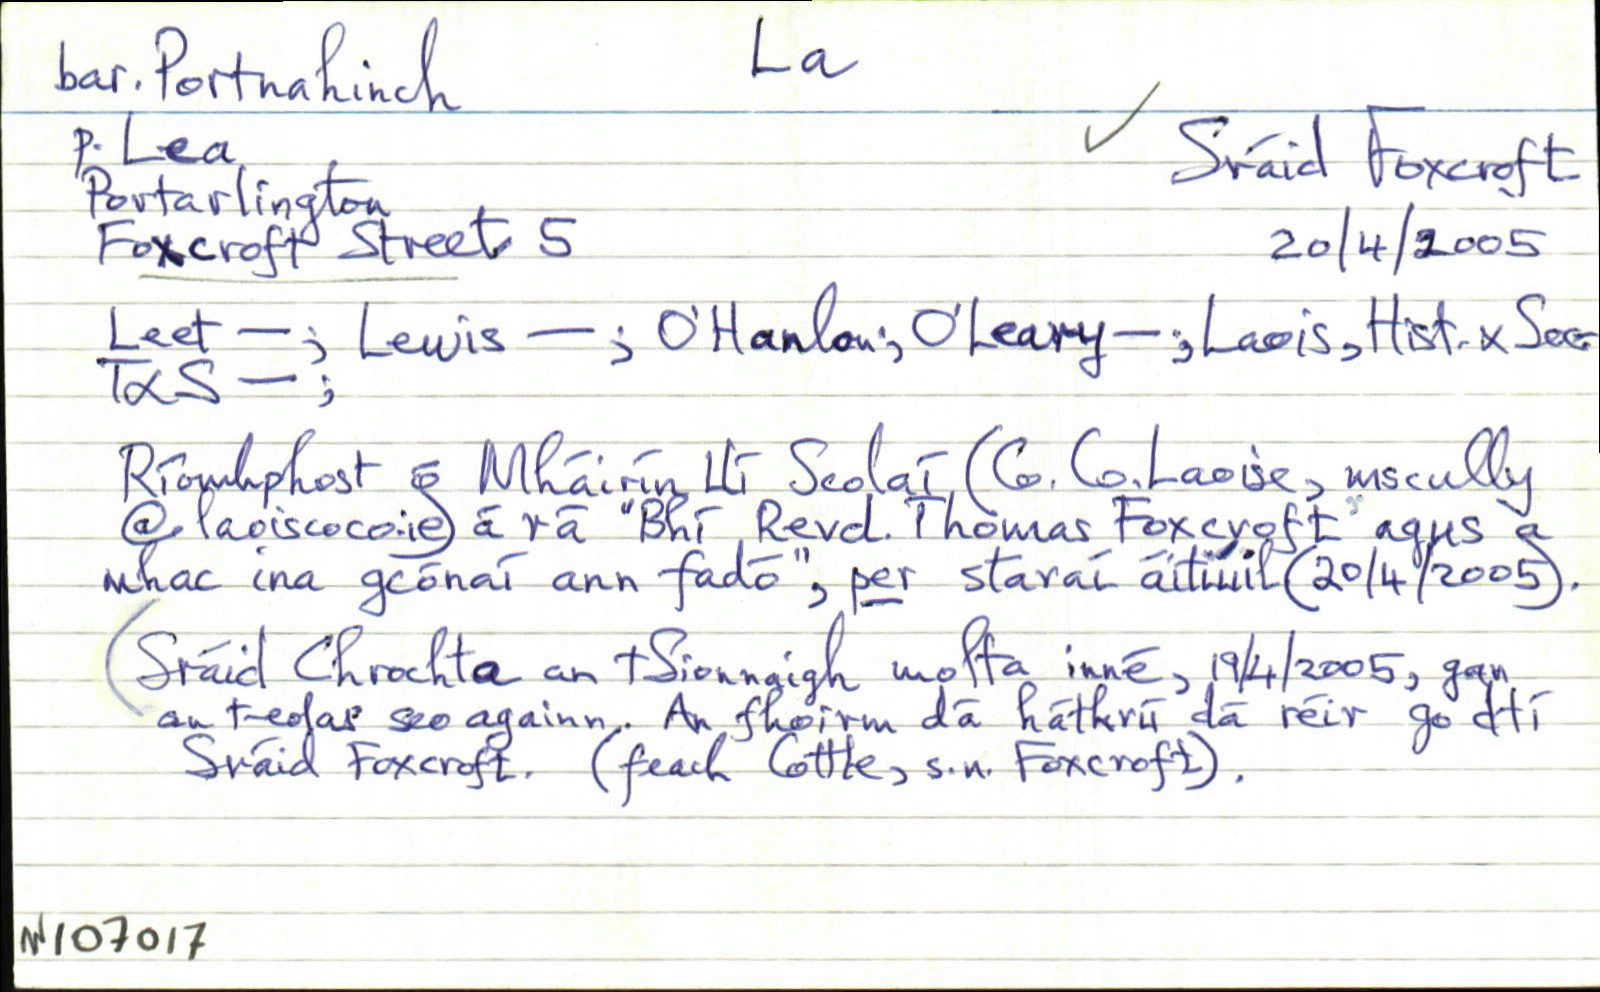 La
bar. Portnahinch
p. Lea
Portarlington
Foxcroft Street 5
✓ Sráid Foxcroft
20/4/2005
Leet —; Lewis —; O'Hanlon; O'Leary —; Laois, Hist. x Soc
T&S —;
Ríomhphost ó Mháirín Uí Scolaí (Co. Co. Laoise, mscully
@laoiscoco.ie) á rá "Bhí Revd. Thomas Foxcroft agus a
mhac ina gcónaí ann fadó", per staraí áitiúil (20/4/2005).
(Sráid Chrochta an tSionnaigh molta inné, 19/4/2005, gan
an t-eolas seo againn. An fhoirm dá háthrú dá réir go dtí
Sráid Foxcroft. (feach Cottle, s.n. Foxcroft).
N107017